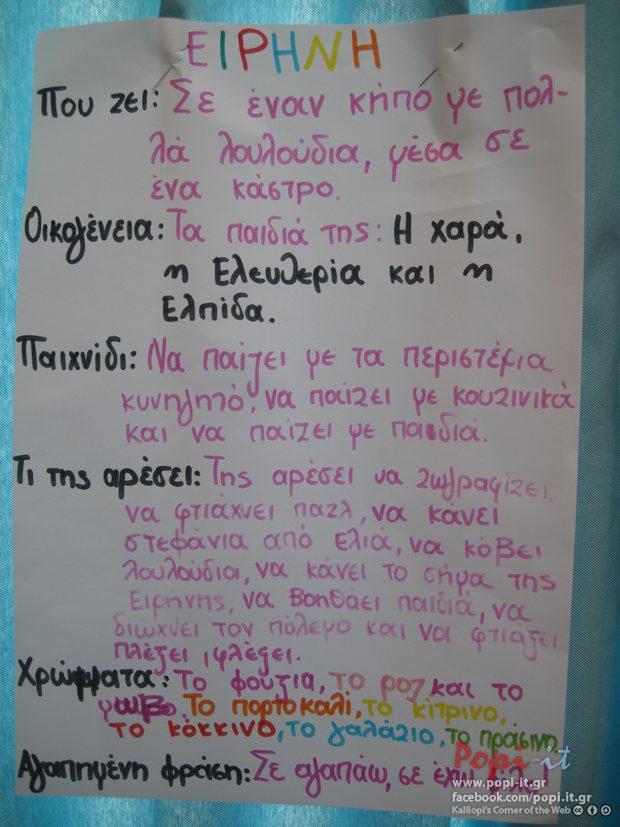 ΕΙΡΗΝΗ
Που ζει: Σε έναν κήπο με πολ-
λά λουλούδια, μέσα σε
ένα κάστρο.
Οικογένεια: Τα παιδιά της: Η χαρά,
η Ελευθερία και η
Ελπίδα.
Παιχνίδι: Να παίζει με τα περιστέρια
κυνηγητό, να παίζει με κουζινικά
και να παίζει με παιδιά.
Τι της αρέσει: Της αρέσει να ζωγραφίζει,
να φτιάχνει παζλ, να κάνει
στεφάνια από ελιά, να κόβει
λουλούδια, να κάνει το σήμα της
Ειρήνης, να βοηθάει παιδιά, να
διώχνει τον πόλεμο και να φτιάξει
Χρώματα: Το φούξια, το ροζ και το
μωβ Το πορτοκαλί, το κίτρινο,
το κόκκινο, το γαλάζιο, το πράσινο
Αγαπημένη φράση: Σε αγαπάω, σε έχω
Popi-it
www.popi-it.gr
facebook.com/popi.it.gr
Kalliopi's Corner of the Web